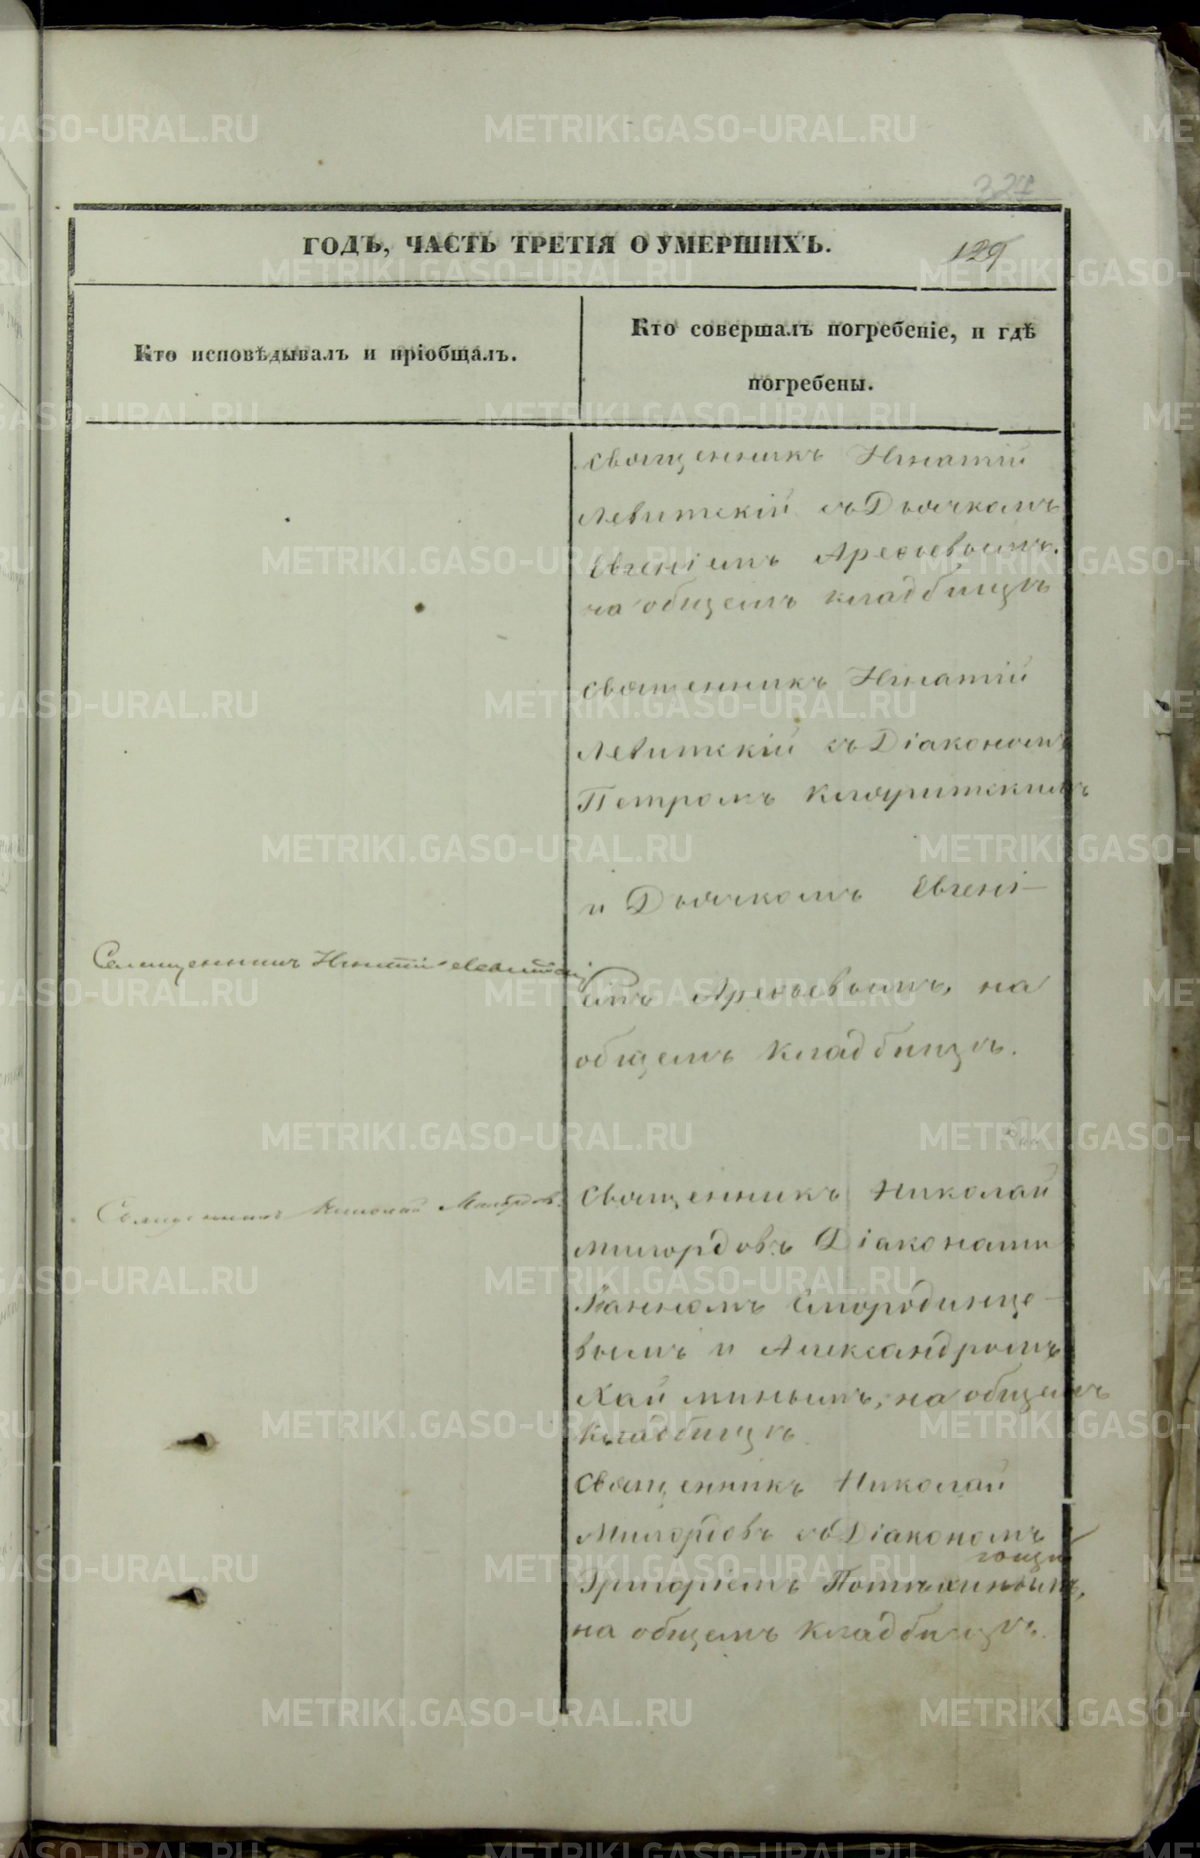 327
ГОДЪ, ЧАСТЬ ТРЕТІЯ О УМЕРШИХЪ.
129
Кто исповѣдывалъ и пріобщалъ.
Кто совершалъ погребеніе, и гдѣ
погребены.
Священникъ Игнатій
Левитскій съ Дьячкомъ
Евгеніемъ Арефьевымъ.
на общемъ кладбищѣ
Священникъ Игнатій
Левитскій съ Діакономъ
Петромъ
и Дьячкомъ Евгені-
Священникъ Игнатій Левитскій
емъ Арефьевымъ, на
общемъ кладбищѣ.
Священникъ Николай
Священникъ Николай
Милордовъ Діаконами
Іоанномъ Смородинце-
вымъ и Александромъ
Хайминымъ, на общемъ
кладбищѣ
Священникъ Николай
Милордовъ съ Діакономъ
Григоріемъ
на общемъ кладбищѣ.
METRIKI.GASO-URAL.RU